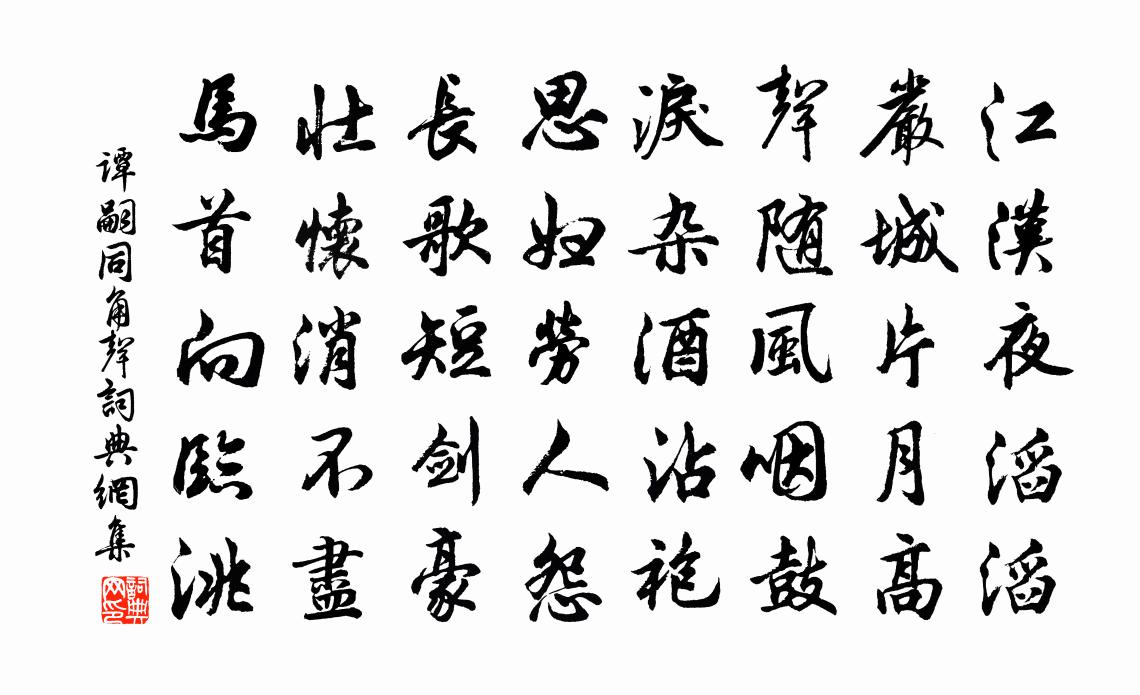 江漢夜滔滔
嚴城片月高
聲随風咽鼓
淚杂酒沾袍
思妇勞人怨
長歌短剑豪
壮懷消不盡
馬首向臨洮
谭嗣同角聲詞典網集
詞典
网印